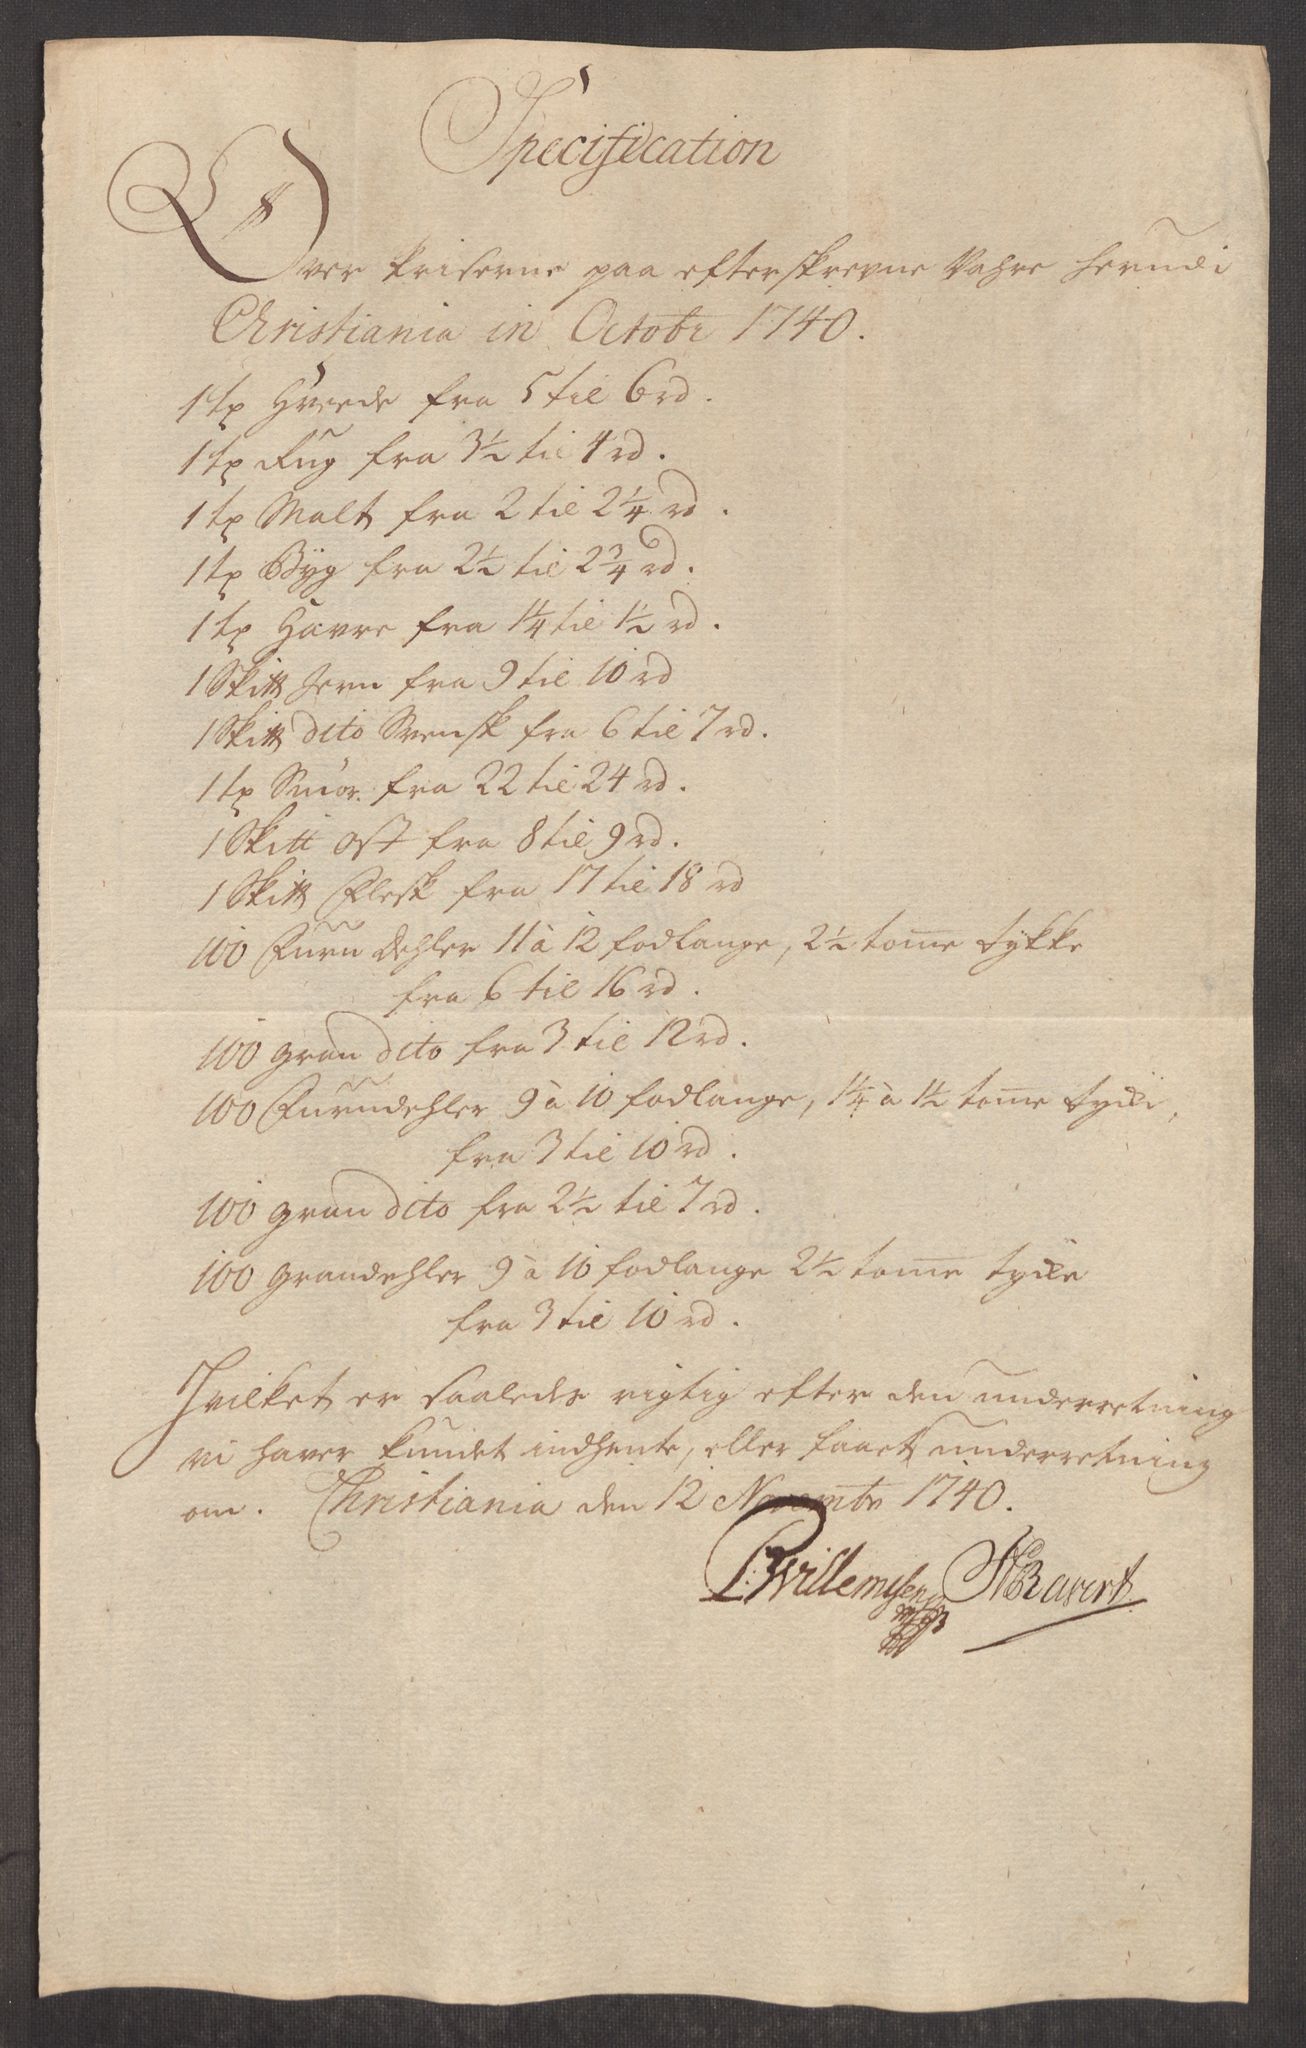 Specification
Over Priserne paa efterskrevne Vahre herudi
Christiania in Octobr 1740.
1 tø Hveede fra 5 til 6 rd.
1 tø Rug fra 3½ til 4 rd.
1 tø Malt fra 2 til 2¼ rd.
1 tø Byg fra 2½ til 2¾ rd.
1 tø Havre fra 1¼ til 1½ rd.
1 Skill Jern fra 9 til 10 rd
1 Skill dito Svensk fra 6 til 7 rd.
1 tø Smör fra 22 til 24 rd.
1 Skill Ost fra 8 til 9 rd.
1 Skill Flesk fra 17 til 18 rd
100 Furu dehler 11 à 12 fodlange, 2½ tome tykke
fra 6 til 16 rd.
100 gran dito fra 3 til 12 rd.
100 Furudehler 9 à 10 fodlange, 1¼ à 1½ tome tycke,
fra 3 til 10 rd.
100 gran dito fra 2½ til 7 rd.
100 grandehler 9 à 10 fodlange 2½ tome tycke
fra 3 til 10 rd.
Hvilket er saaledes rigtig efter den underretning
vi haver kundet indhente, eller faaet underretning
om. Christiania den 12 Novembr 1740.
P: Willemsen HRavert